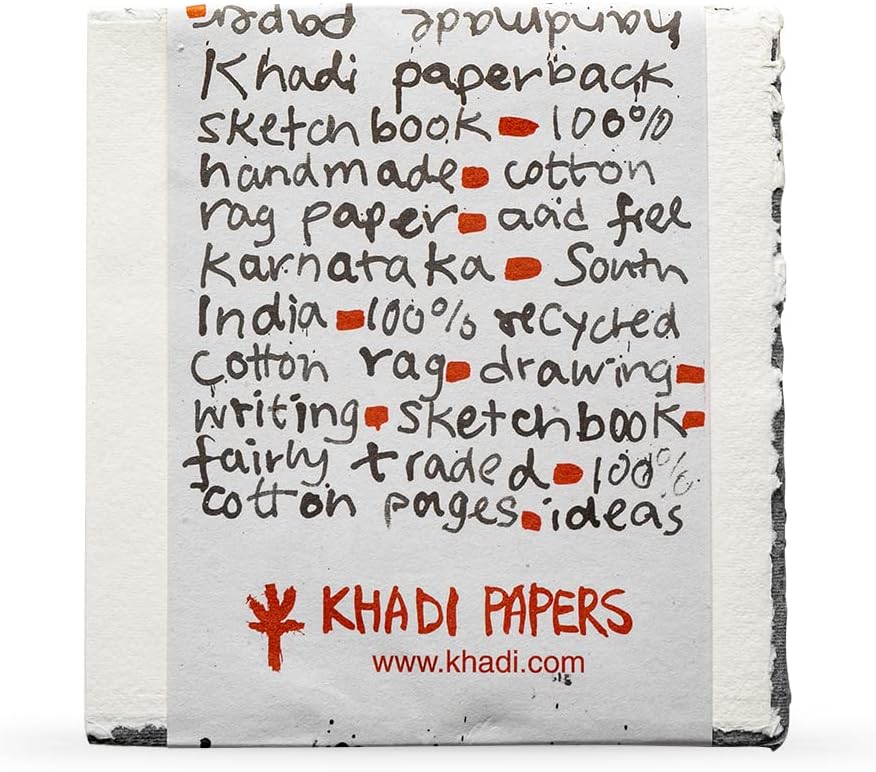 handmade paper
Khadi paperback
sketchbook - 100%
handmade - cotton
rag paper - acid free
Karnataka - South
India - 100% recycled
Cotton rag - drawing -
writing - sketchbook -
fairly traded - 100%
cotton pages - ideas
KHADI PAPERS
www.khadi.com